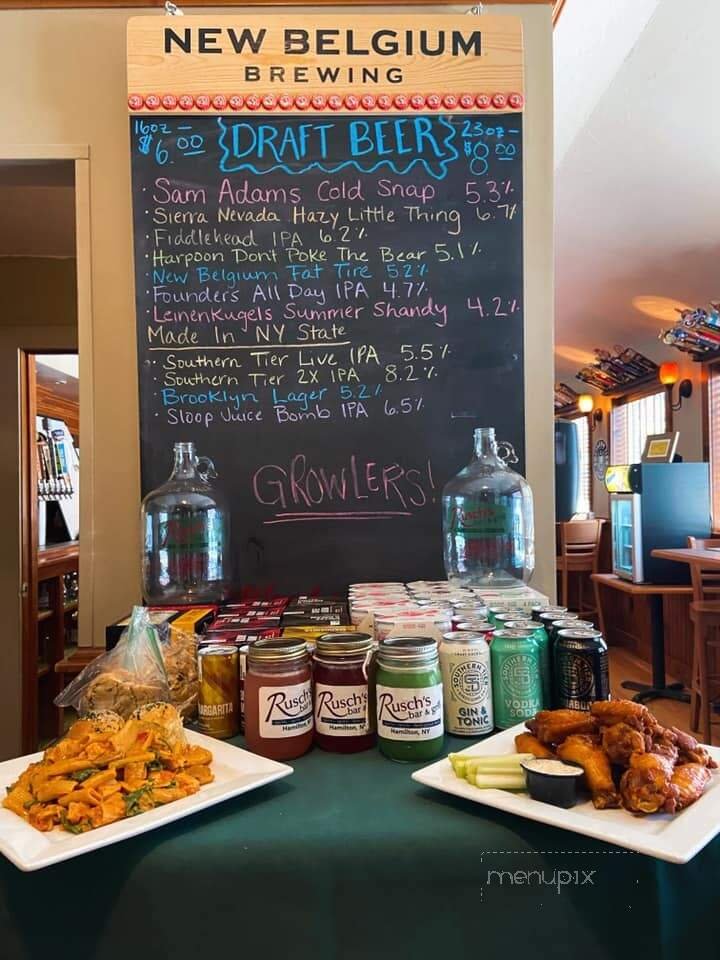 NEW BELGIUM
BREWING
16oz — $6.00
DRAFT BEER
23oz — $8.00
· Sam Adams Cold Snap 5.3%
· Sierra Nevada Hazy Little Thing 6.7%
Fiddlehead IPA 6.2%
· Harpoon Dont Poke The Bear 5.1%
· New Belgium Fat Tire 5.2%
· Founders All Day IPA 4.7%
· Leinenkugels Summer Shandy 4.2%
Made In NY State
· Southern Tier Live IPA 5.5%
· Southern Tier 2X IPA 8.2%
· Brooklyn Lager 5.2%
· Sloop Juice Bomb IPA 6.5%
GROWLERS!
Rusch's
Rusch's
MARGARITA
Rusch's
bar &
Hamilton, NY
Rusch's
bar &
Hamilton, NY
Rusch's
bar & grill
Hamilton, NY
SOUTHERN TIER
GIN & TONIC
SOUTHERN TIER
VODKA SODA
menupix